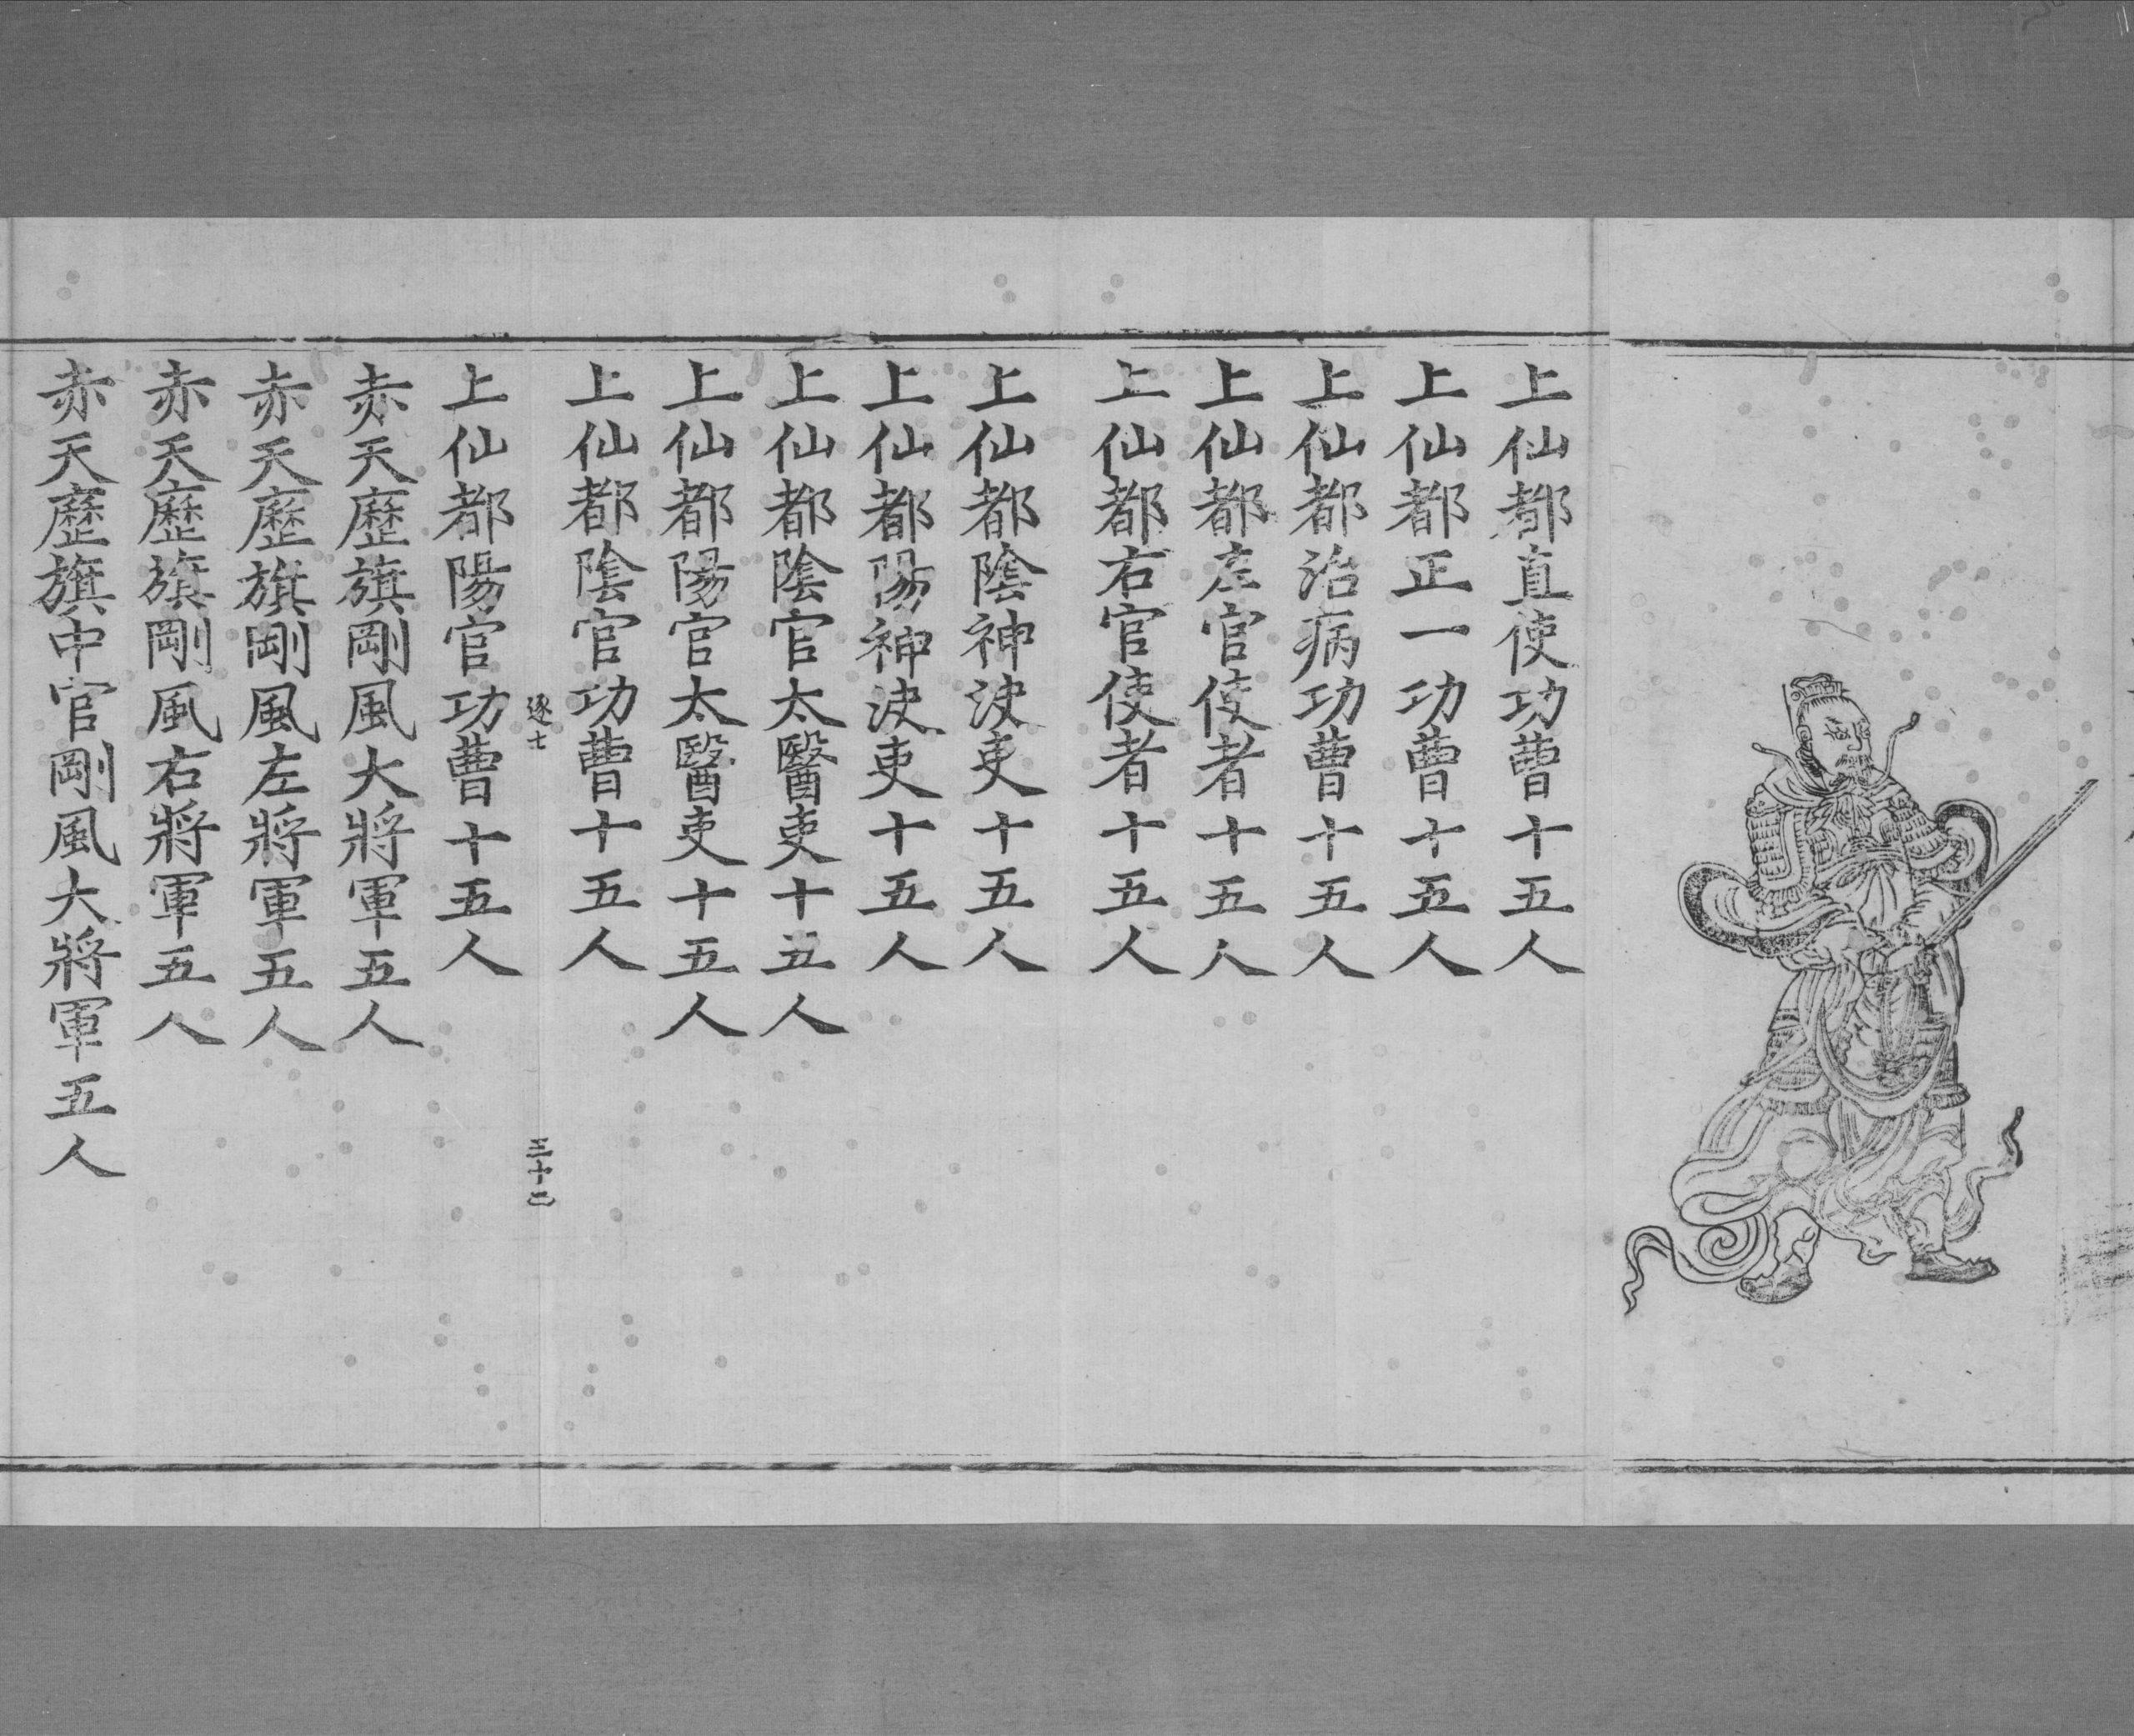 上仙都直使功曹十五人
上仙都正一功曹十五人
上仙都治病功曹十五人
上仙都左官使者十五人
上仙都右官使者十五人
上仙都陰神決吏十五人
上仙都陽神決吏十五人
上仙都陰官太醫吏十五人
上仙都陽官太醫吏十五人
上仙都陰官功曹十五人
逐七
三十二
上仙都陽官功曹十五人
赤天歷旗剛風大將軍五人
赤天歷旗剛風左將軍五人
赤天歷旗剛風右將軍五人
赤天歷旗中官剛風大將軍五人